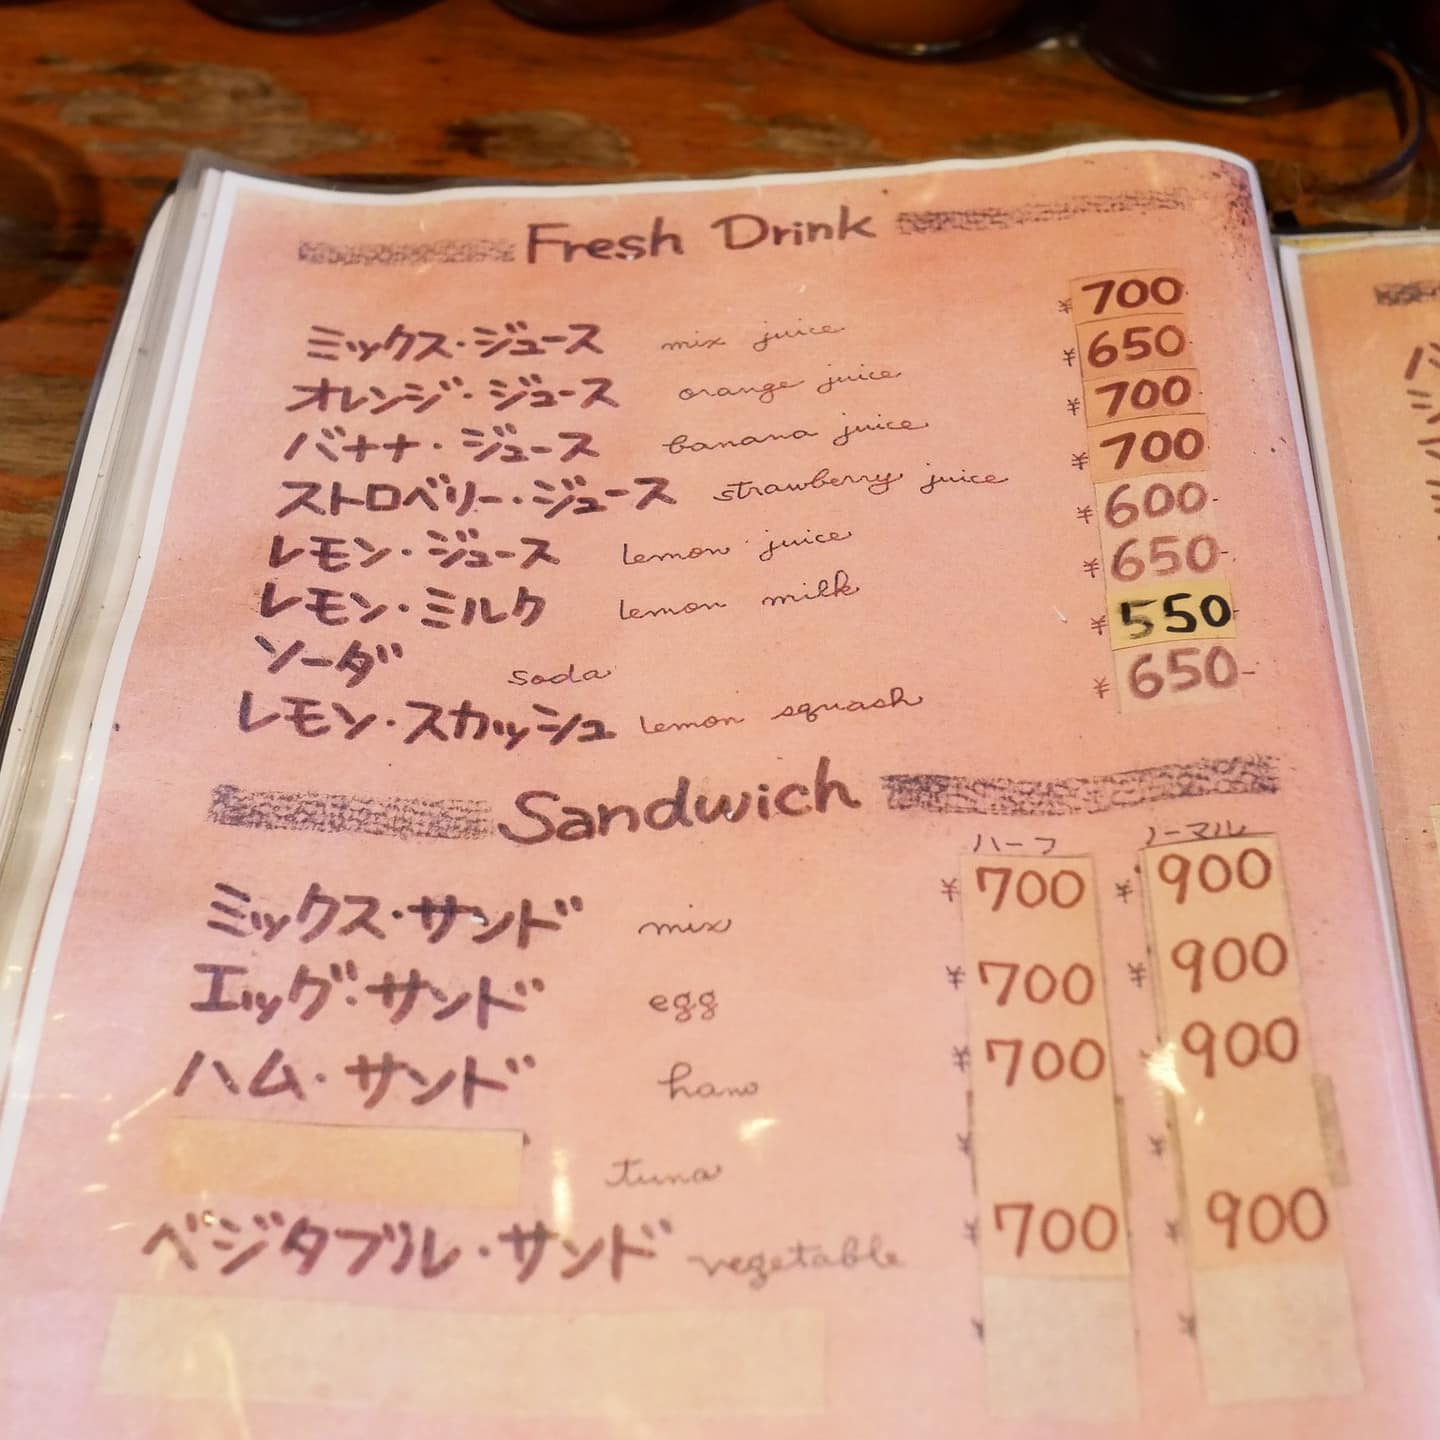 Fresh Drink
ミックス・ジュース mix juice ¥700
オレンジ・ジュース orange juice ¥650
バナナ・ジュース banana juice ¥700
ストロベリー・ジュース strawberry juice ¥700
レモン・ジュース lemon juice ¥600-
レモン・ミルク lemon milk ¥650-
ソーダ soda ¥550-
レモン・スカッシュ lemon squash ¥650-
Sandwich
ハーフ ノーマル
ミックス・サンド mix ¥700 ¥900
エッグ・サンド egg ¥700 ¥900
ハム・サンド ham ¥700 ¥900
tuna ¥ ¥
ベジタブル・サンド vegetable ¥700 ¥900
¥ ¥